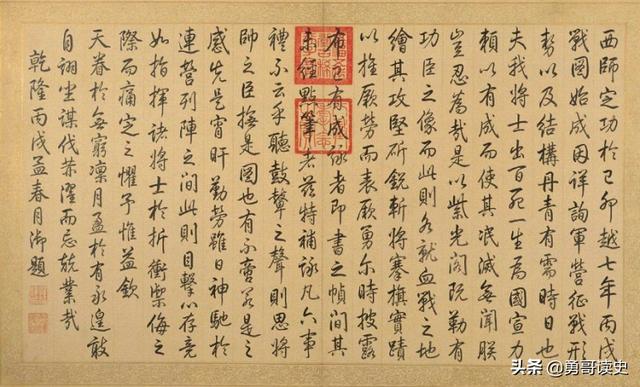 西師定功於己卯越七年丙戌
戰圖始成因詳詢軍營征戰形
勢以及結構丹青有需時日也
夫我將士出百死一生為國宣力
賴以有成而使其泯滅無聞朕
豈忍為哉是以紫光閣既勒有
功臣之像而此則各就血戰之地
繪其攻堅斫銳斬將搴旗實蹟
以旌厥勞而表厥勇爾時披露
布有成詠者即書之幀間其
未經點筆者茲特補詠凡六事
禮不云乎聽鼓鼙之聲則思將
帥之臣撫是圖也有不啻若是之
感先是宵旰勤勞雖日神馳於
連營列陣之間此則目擊心存竟
如指揮諸將士於折衝禦侮之
際而痛定之懼予惟益欽
天眷於無窮凜月盈於有永遑敢
自詡坐謀伐濯而忘兢業哉
乾隆丙戌孟春月御題
头条 @勇哥读史